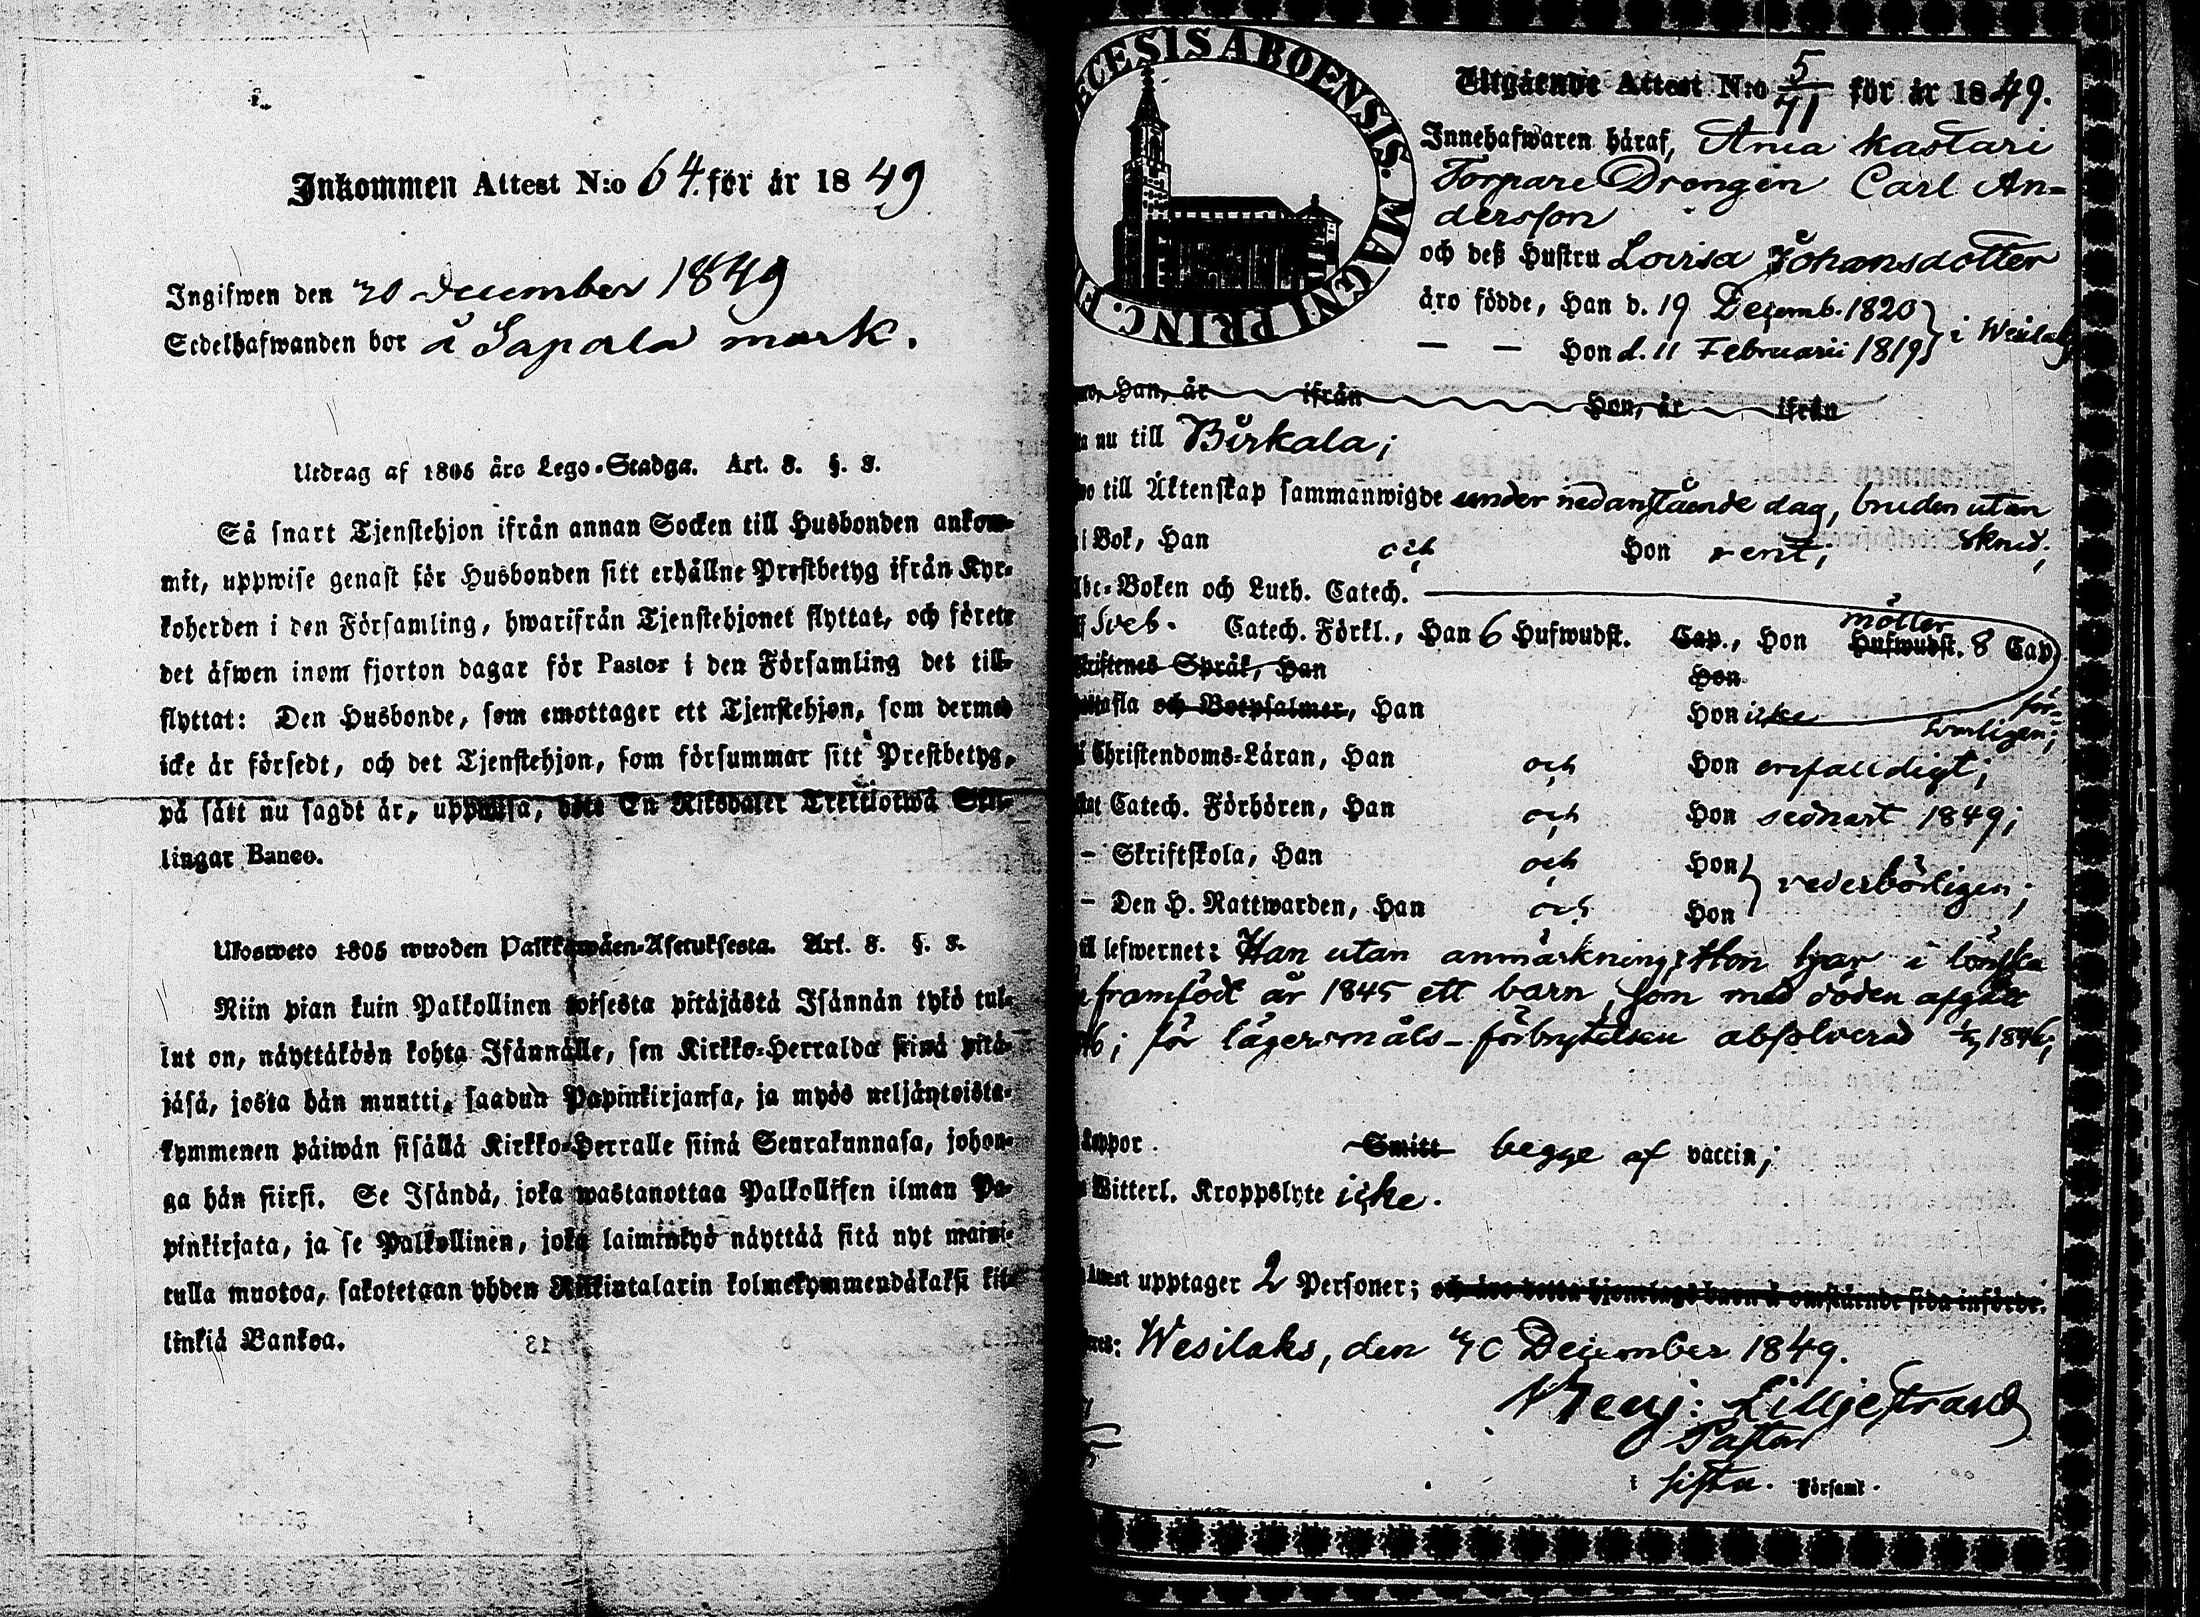 Inkommen Attest N:o 64. för år 1849
Ingifwen den 30 december 1849
Sedelhafwanden bor å Sapala mark.
Utdrag af 1805 års Lego-Stadga. Art. 8. §. 8.
Så snart Tjenstehjon ifrån annan Socken till Husbonden ankom-
mit, uppwise genast för Husbonden sitt erhållne Prestbetyg ifrån Kyr-
koherden i den Församling, hwarifrån Tjenstehjonet flyttat, och förete
det äfwen inom fjorton dagar för Pastor i den Församling det till-
flyttat: Den Husbonde, som emottager ett Tjenstehjon, som dermed
icke är försedt, och det Tjenstehjon, som försummar sitt Prestbetyg,
på sätt nu sagdt är, uppwisa, böte En Riksdaler Trettiotwå Skil-
lingar Banco.
Ulosweto 1805 wuoden Palkkawäen-Asetuksesta. Art. 8. §. 8.
Niin pian kuin Palkollinen toisesta pitäjästä Isännän tykö tul-
lut on, näyttäköön kohta Isännälle, sen Kirkko-Herralda siinä pitä-
jäsä, josta hän muutti, saadun Papinkirjansa, ja myös neljäntoista-
kymmenen päiwän sisällä Kirkko-Herralle siinä Seurakunnasa, johon-
ga hän siirsi. Se Isändä, joka wastanottaa Palkollisen ilman Pa-
pinkirjata, ja se Palkollinen, joka laiminlyö näyttää sitä nyt maini-
tulla muotoa, sakotetaan yhden Riikintalarin kolmekymmendäkaksi kil-
linkiä Bankoa.
ŒCESIS ABOENSIS. MAGNI PRINC. F
Utgående Attest N:o 5/71 för år 1849.
Innehafwaren häraf, Ania Kastari
Torpare Drengen Carl An-
dersson
och deß Hustru Lovisa Johansdotter
äro födde, Han d. 19 Decemb. 1820
— — Hon d. 11 Februarii 1819 } i Wesilaks
Han, är ifrån Hon, är ifrån
nu till Birkala;
till Äktenskap sammanwigde under nedanstående dag, bruden utan
skrud;
i Bok, Han och Hon rent;
Abc-Boken och Luth. Catech.
Sveb. Catech. Förkl., Han 6 Hufwudst. Cap., Hon Hufwudst. 8 Cap
möller
Skriftenes Språk, Han Hon
tafla och Botpsalmer, Han Hon icke för-
svarligen;
Christendoms-Läran, Han och Hon enfalldigt;
Catech. Förhören, Han och Hon sednast 1849;
- Skriftskola, Han och Hon
- Den H. Nattwarden, Han och Hon } vederbörligen;
till lefwernet: Han utan anmärkning; Hon har i lönska
framfödt år 1845 ett barn, som med döden afgått
för lägersmåls-förbrytelsen absolverad 1846;
Koppor. Smitt begge af vaccin;
Witterl. Kroppslyte icke.
Attest upptager 2 Personer; och äro detta hjonelags barn å omstående sida införde.
Wesilaks, den 30 December 1849.
Benj: Lilljestrand
Pastor
i sistn. Församl.